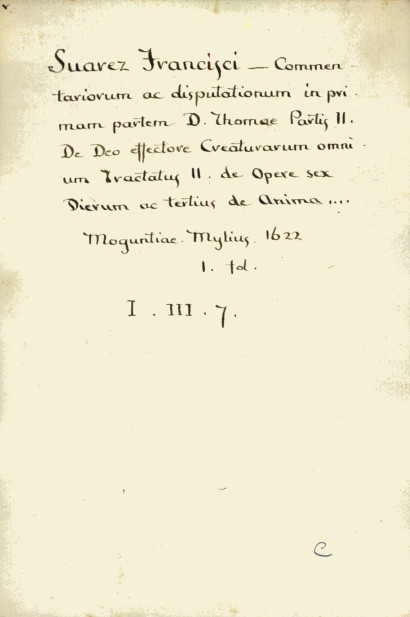 Suarez Francisci — Commen-
tariorum ac disputationum in pri-
mam partem D. Thomae Partis II.
De Deo effectore Creaturarum omni-
um Tractatus II. de Opere sex
Dierum ac tertius de Anima ....
Moguntiae. Mylius. 1622
1. fol.
I . III . 7.
C